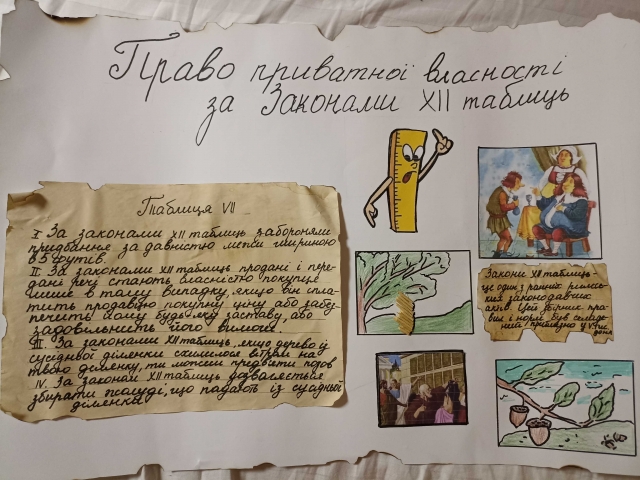 Право приватної власності
за Законами XII таблиць
Таблиця VII
I. За законами XII таблиць забороняли
придбання за давністю межі шириною
в 5 футів.
II. За законами XII таблиць продані і пере-
дані речі стають власністю покупця
лише в тому випадку, якщо він спла-
тить продавцю покупну ціну або забез-
печить йому будь-яку заставу, або
задовільнить його вимоги.
III. За законами XII таблиць, якщо дерево із
сусідньої ділянки схилилося вітром на
твою ділянку, ти можеш предʼявити позов
IV. За законом XII таблиць дозволяється
збирати жолуді, що падають із сусідньої
ділянки
Закони XII таблиць -
це один з ранніх римсь-
ких законодавчих
актів. Цей збірник пра-
вил і норм був
приблизно у V ст.